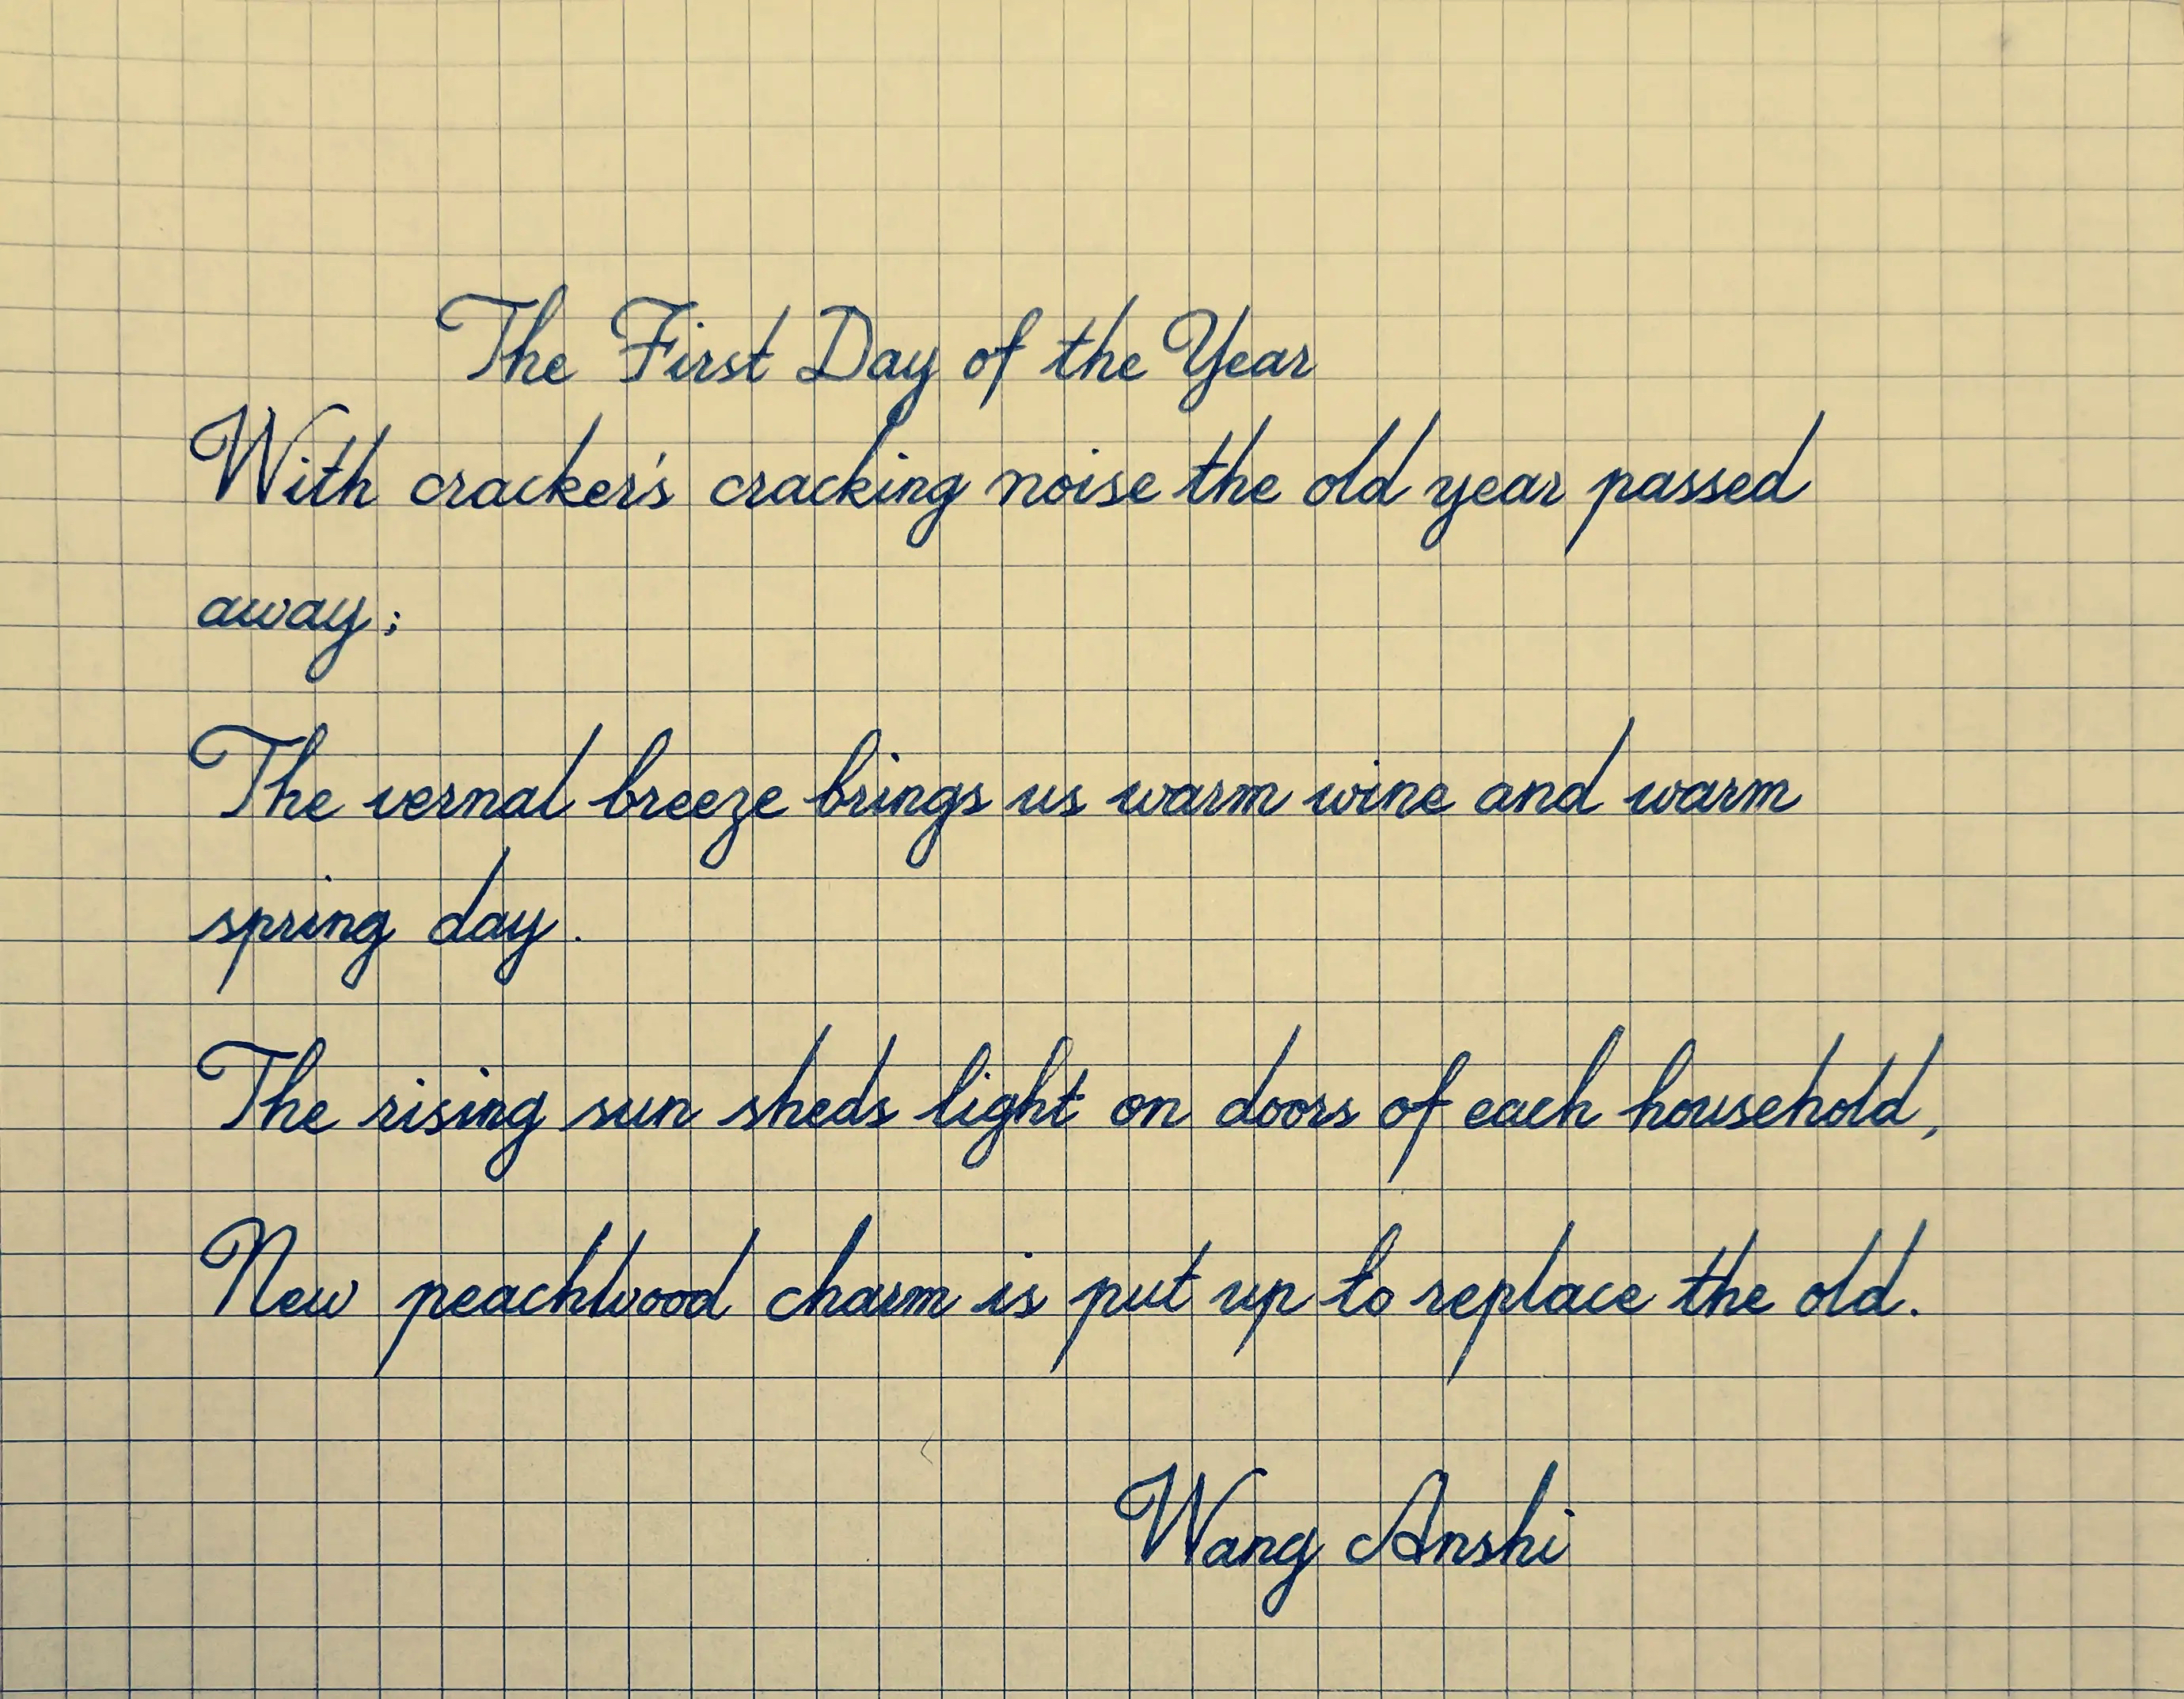 The First Day of the Year
With cracker's cracking noise the old year passed
away;
The vernal breeze brings us warm wine and warm
spring day.
The rising sun sheds light on doors of each household,
New peachwood charm is put up to replace the old.
Wang Anshi